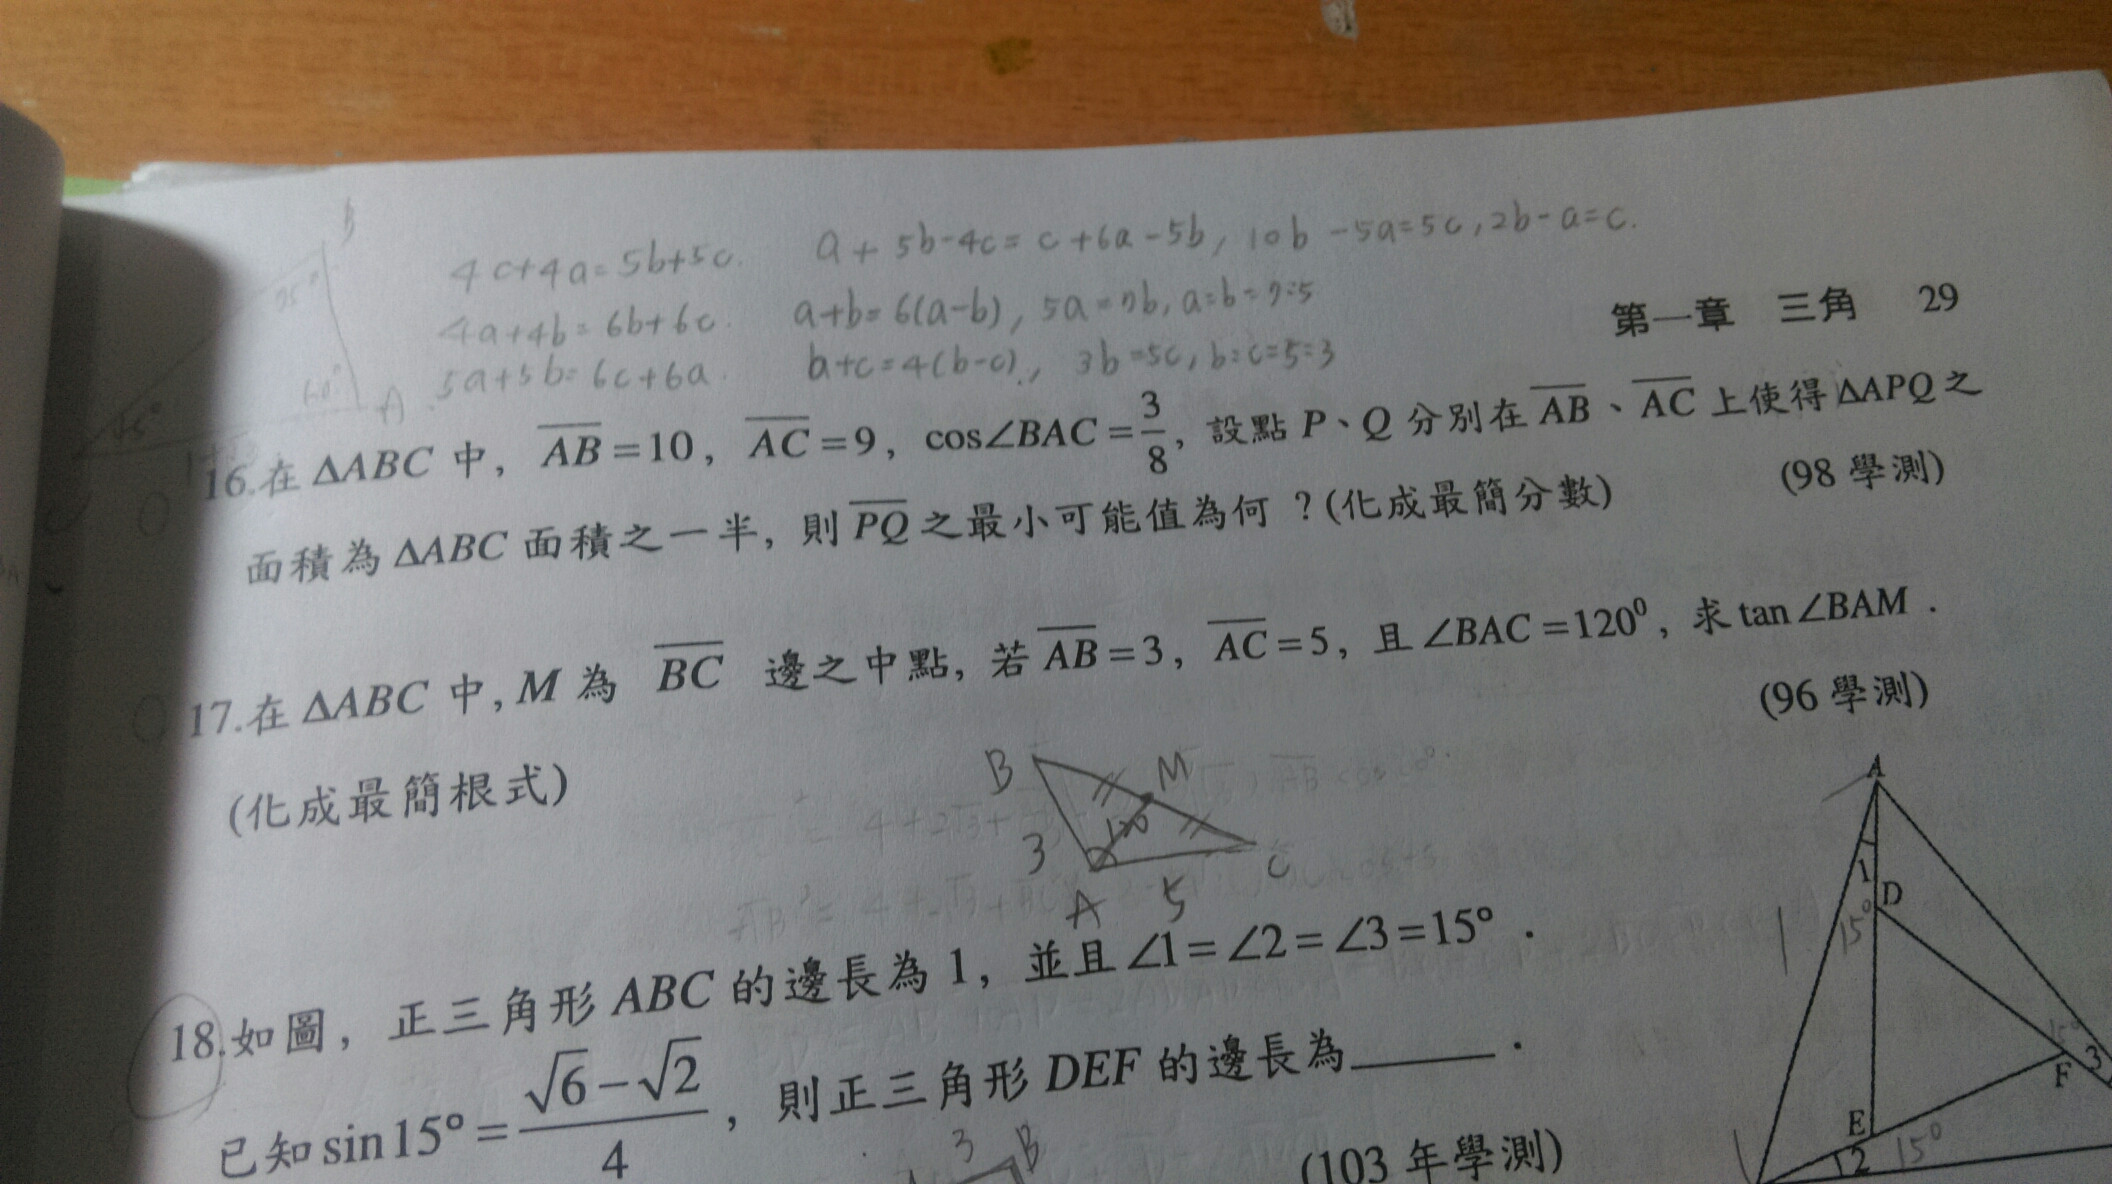 B
75°
60°
A
45°
4c+4a=5b+5c. a+5b-4c=c+6a-5b, 10b-5a=5c, 2b-a=c.
4a+4b=6b+6c. a+b=6(a-b), 5a=7b, a:b=7:5
5a+5b=6c+6a. b+c=4(b-c), 3b=5c, b:c=5:3
第一章 三角 29
16.在 ΔABC 中, AB=10, AC=9, cos∠BAC=3/8, 設點 P、Q 分別在 AB、AC 上使得 ΔAPQ 之
面積為 ΔABC 面積之一半, 則 PQ 之最小可能值為何 ? (化成最簡分數) (98 學測)
17.在 ΔABC 中, M 為 BC 邊之中點, 若 AB=3, AC=5, 且 ∠BAC=120⁰, 求 tan∠BAM .
(化成最簡根式) (96 學測)
B M
3 120 C
A 5
18.如圖, 正三角形 ABC 的邊長為 1, 並且 ∠1=∠2=∠3=15° .
已知 sin15°=(√6-√2)/4, 則正三角形 DEF 的邊長為______ .
(103 年學測)
3 B
A
1
D
1 15°
15°
3
F
E
2 15°